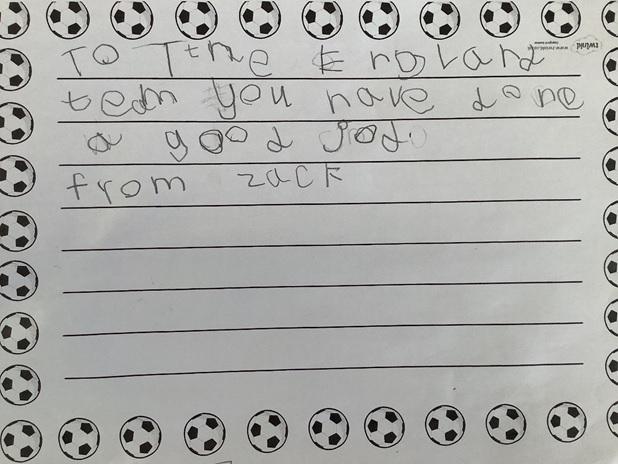 To Tthe England
team you have done
a good jod.
from zack
twinkl